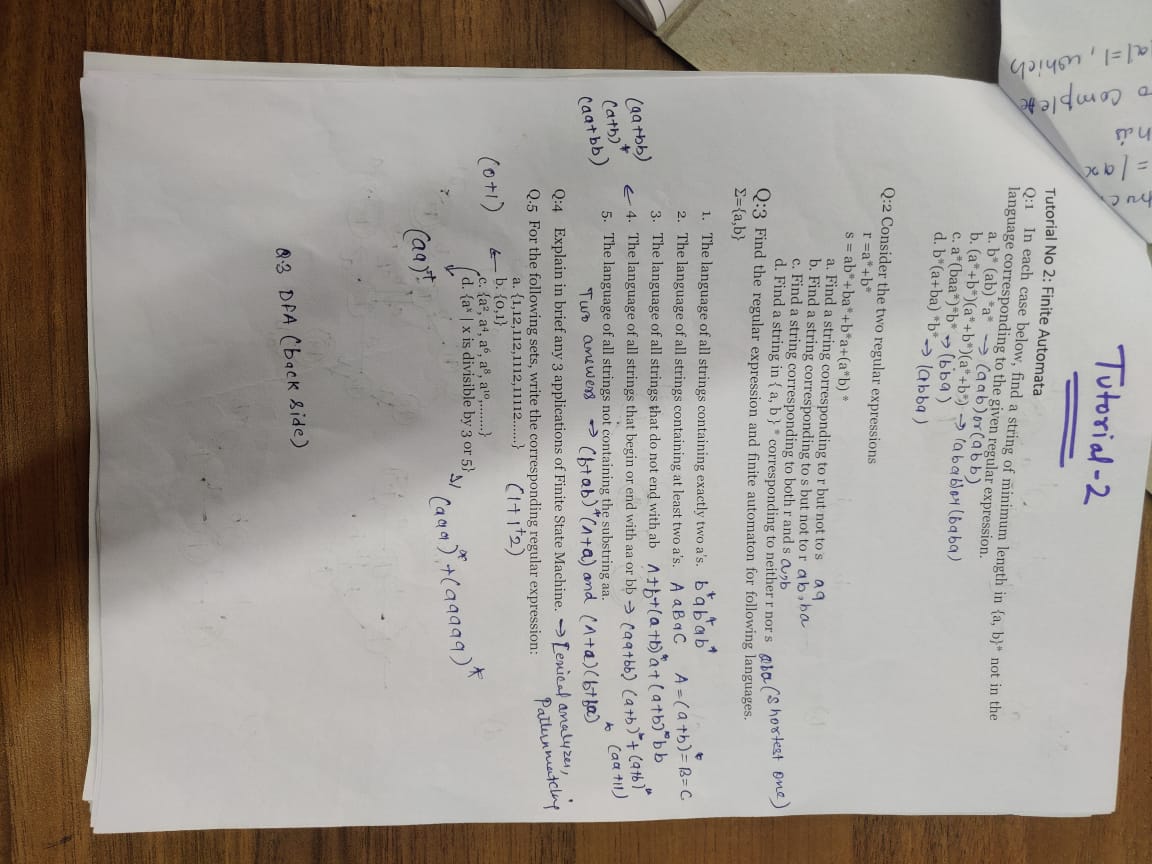 Tutorial-2
Tutorial No 2: Finite Automata
Q:1 In each case below, find a string of minimum length in {a, b}* not in the
language corresponding to the given regular expression.
a. b* (ab) *a* → (aab) or (abb)
b. (a*+b*)(a*+b*)(a*+b*) → (abab) or (baba)
c. a*(baa*)*b* → (bba)
d. b*(a+ba) *b* → (abba)
Q:2 Consider the two regular expressions
r =a*+b*
s = ab*+ba*+b*a+(a*b) *
a. Find a string corresponding to r but not to s aa
b. Find a string corresponding to s but not to r ab, ba
c. Find a string corresponding to both r and s a, b
d. Find a string in { a, b} * corresponding to neither r nor s aba (shortest one)
Q:3 Find the regular expression and finite automaton for following languages.
Σ={a,b}
1. The language of all strings containing exactly two a's. b*ab*ab*
2. The language of all strings containing at least two a's. A aBaC A = (a+b)* = B = C
3. The language of all strings that do not end with ab Λ+b+(a+b)*a+(a+b)*bb
(aa+bb) (a+b)* ← 4. The language of all strings that begin or end with aa or bb → (aa+bb) (a+b)* + (a+b)* (aa+11)
(aa+bb)
5. The language of all strings not containing the substring aa.
Two answers → (b+ab)*(Λ+a) and (Λ+a)(b+ba)*
Q:4 Explain in brief any 3 applications of Finite State Machine. → Lexical analyzer, Pattern matching
Q.5 For the following sets, write the corresponding regular expression:
a. {1,12,112,1112,11112......} (1+1⁺2)
(0+1) ← b. {0,1}
c. {a², a⁴, a⁶, a⁸, a¹⁰,........}
(aa)⁺
d. {aˣ | x is divisible by 3 or 5} (aaa)* + (aaaaa)*
Q.3 DFA (back side)
al=1, which
complete